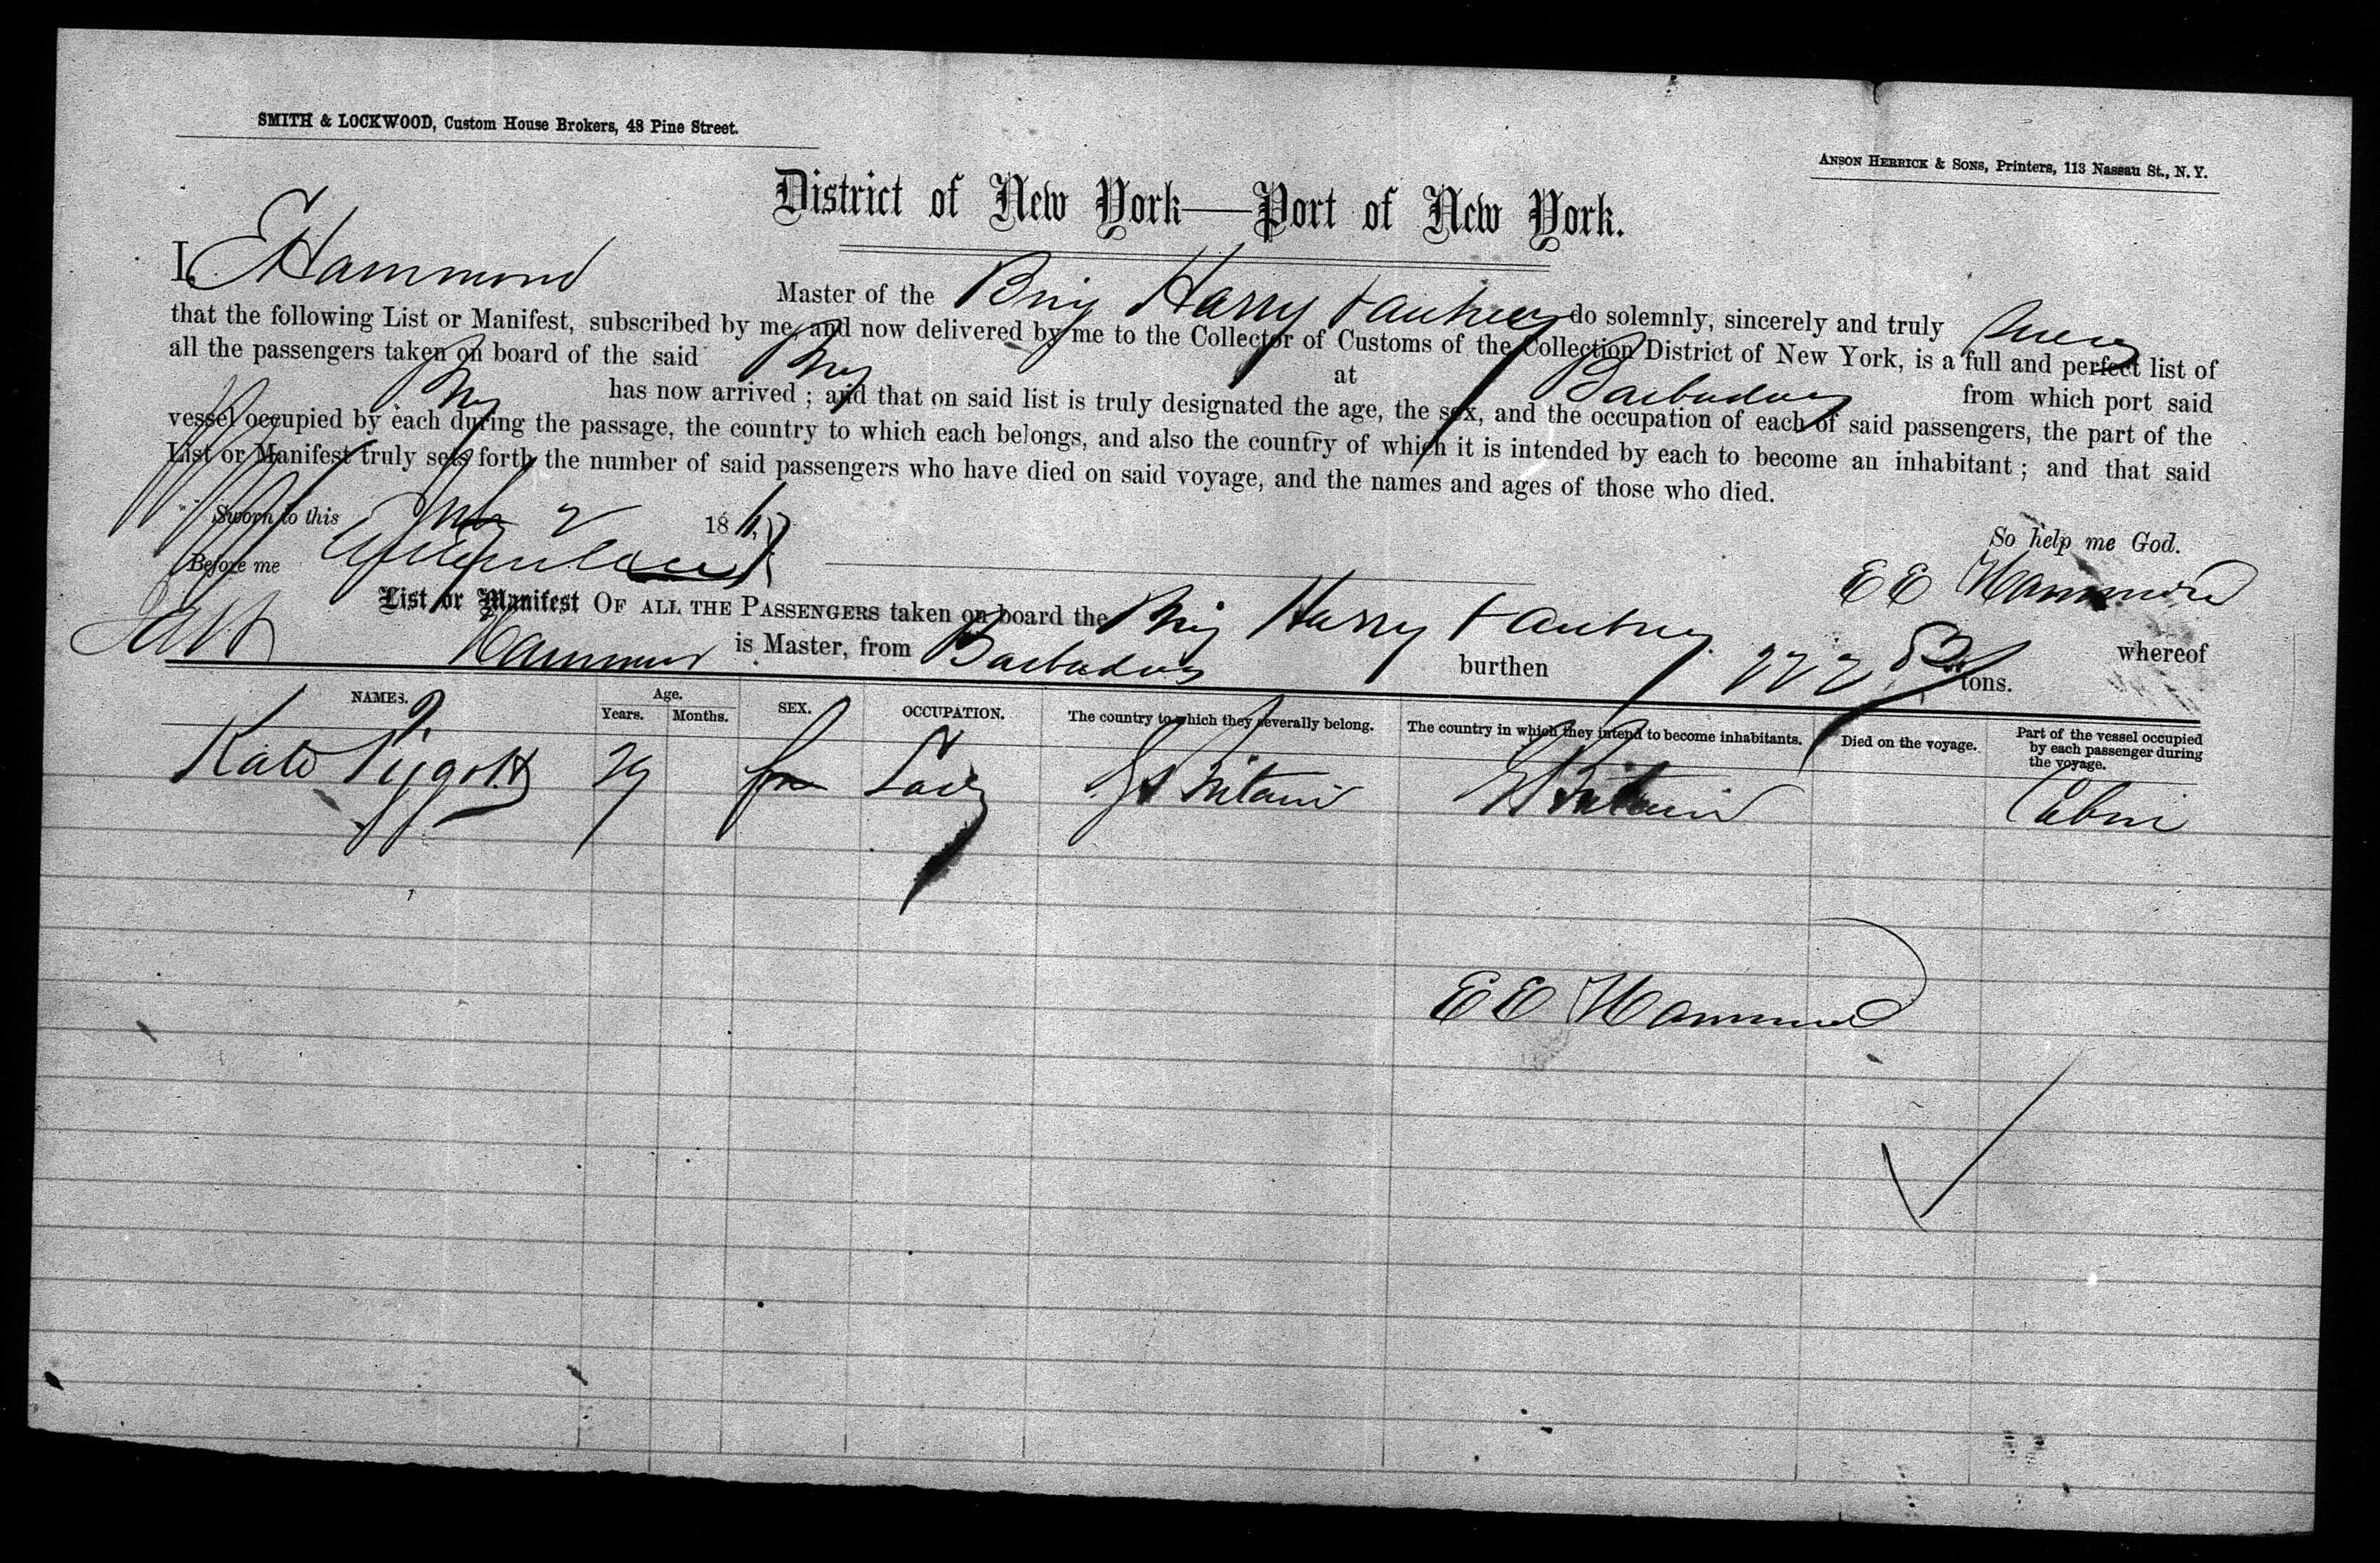 SMITH & LOCKWOOD, Custom House Brokers, 48 Pine Street.
ANSON HERRICK & SONS, Printers, 113 Nassau St., N. Y.
District of New York—Port of New York.
I, E Hammond Master of the Brig Harry do solemnly, sincerely and truly swear
that the following List or Manifest, subscribed by me, and now delivered by me to the Collector of Customs of the Collection District of New York, is a full and perfect list of
all the passengers taken on board of the said Brig at Barbados from which port said
Brig has now arrived ; and that on said list is truly designated the age, the sex, and the occupation of each of said passengers, the part of the
vessel occupied by each during the passage, the country to which each belongs, and also the country of which it is intended by each to become an inhabitant ; and that said
List or Manifest truly sets forth the number of said passengers who have died on said voyage, and the names and ages of those who died.
Sworn to this 2 186
So help me God.
Before me
E E Hammond
List or Manifest OF ALL THE PASSENGERS taken on board the Brig Harry whereof
Hammond is Master, from Barbados burthen tons.
NAMES. Age. Years. Months. SEX. OCCUPATION. The country to which they severally belong. The country in which they intend to become inhabitants. Died on the voyage. Part of the vessel occupied by each passenger during the voyage.
Kate Pigott 29 fm Lady Gt Britain Gt Britain Cabin
E E Hammond